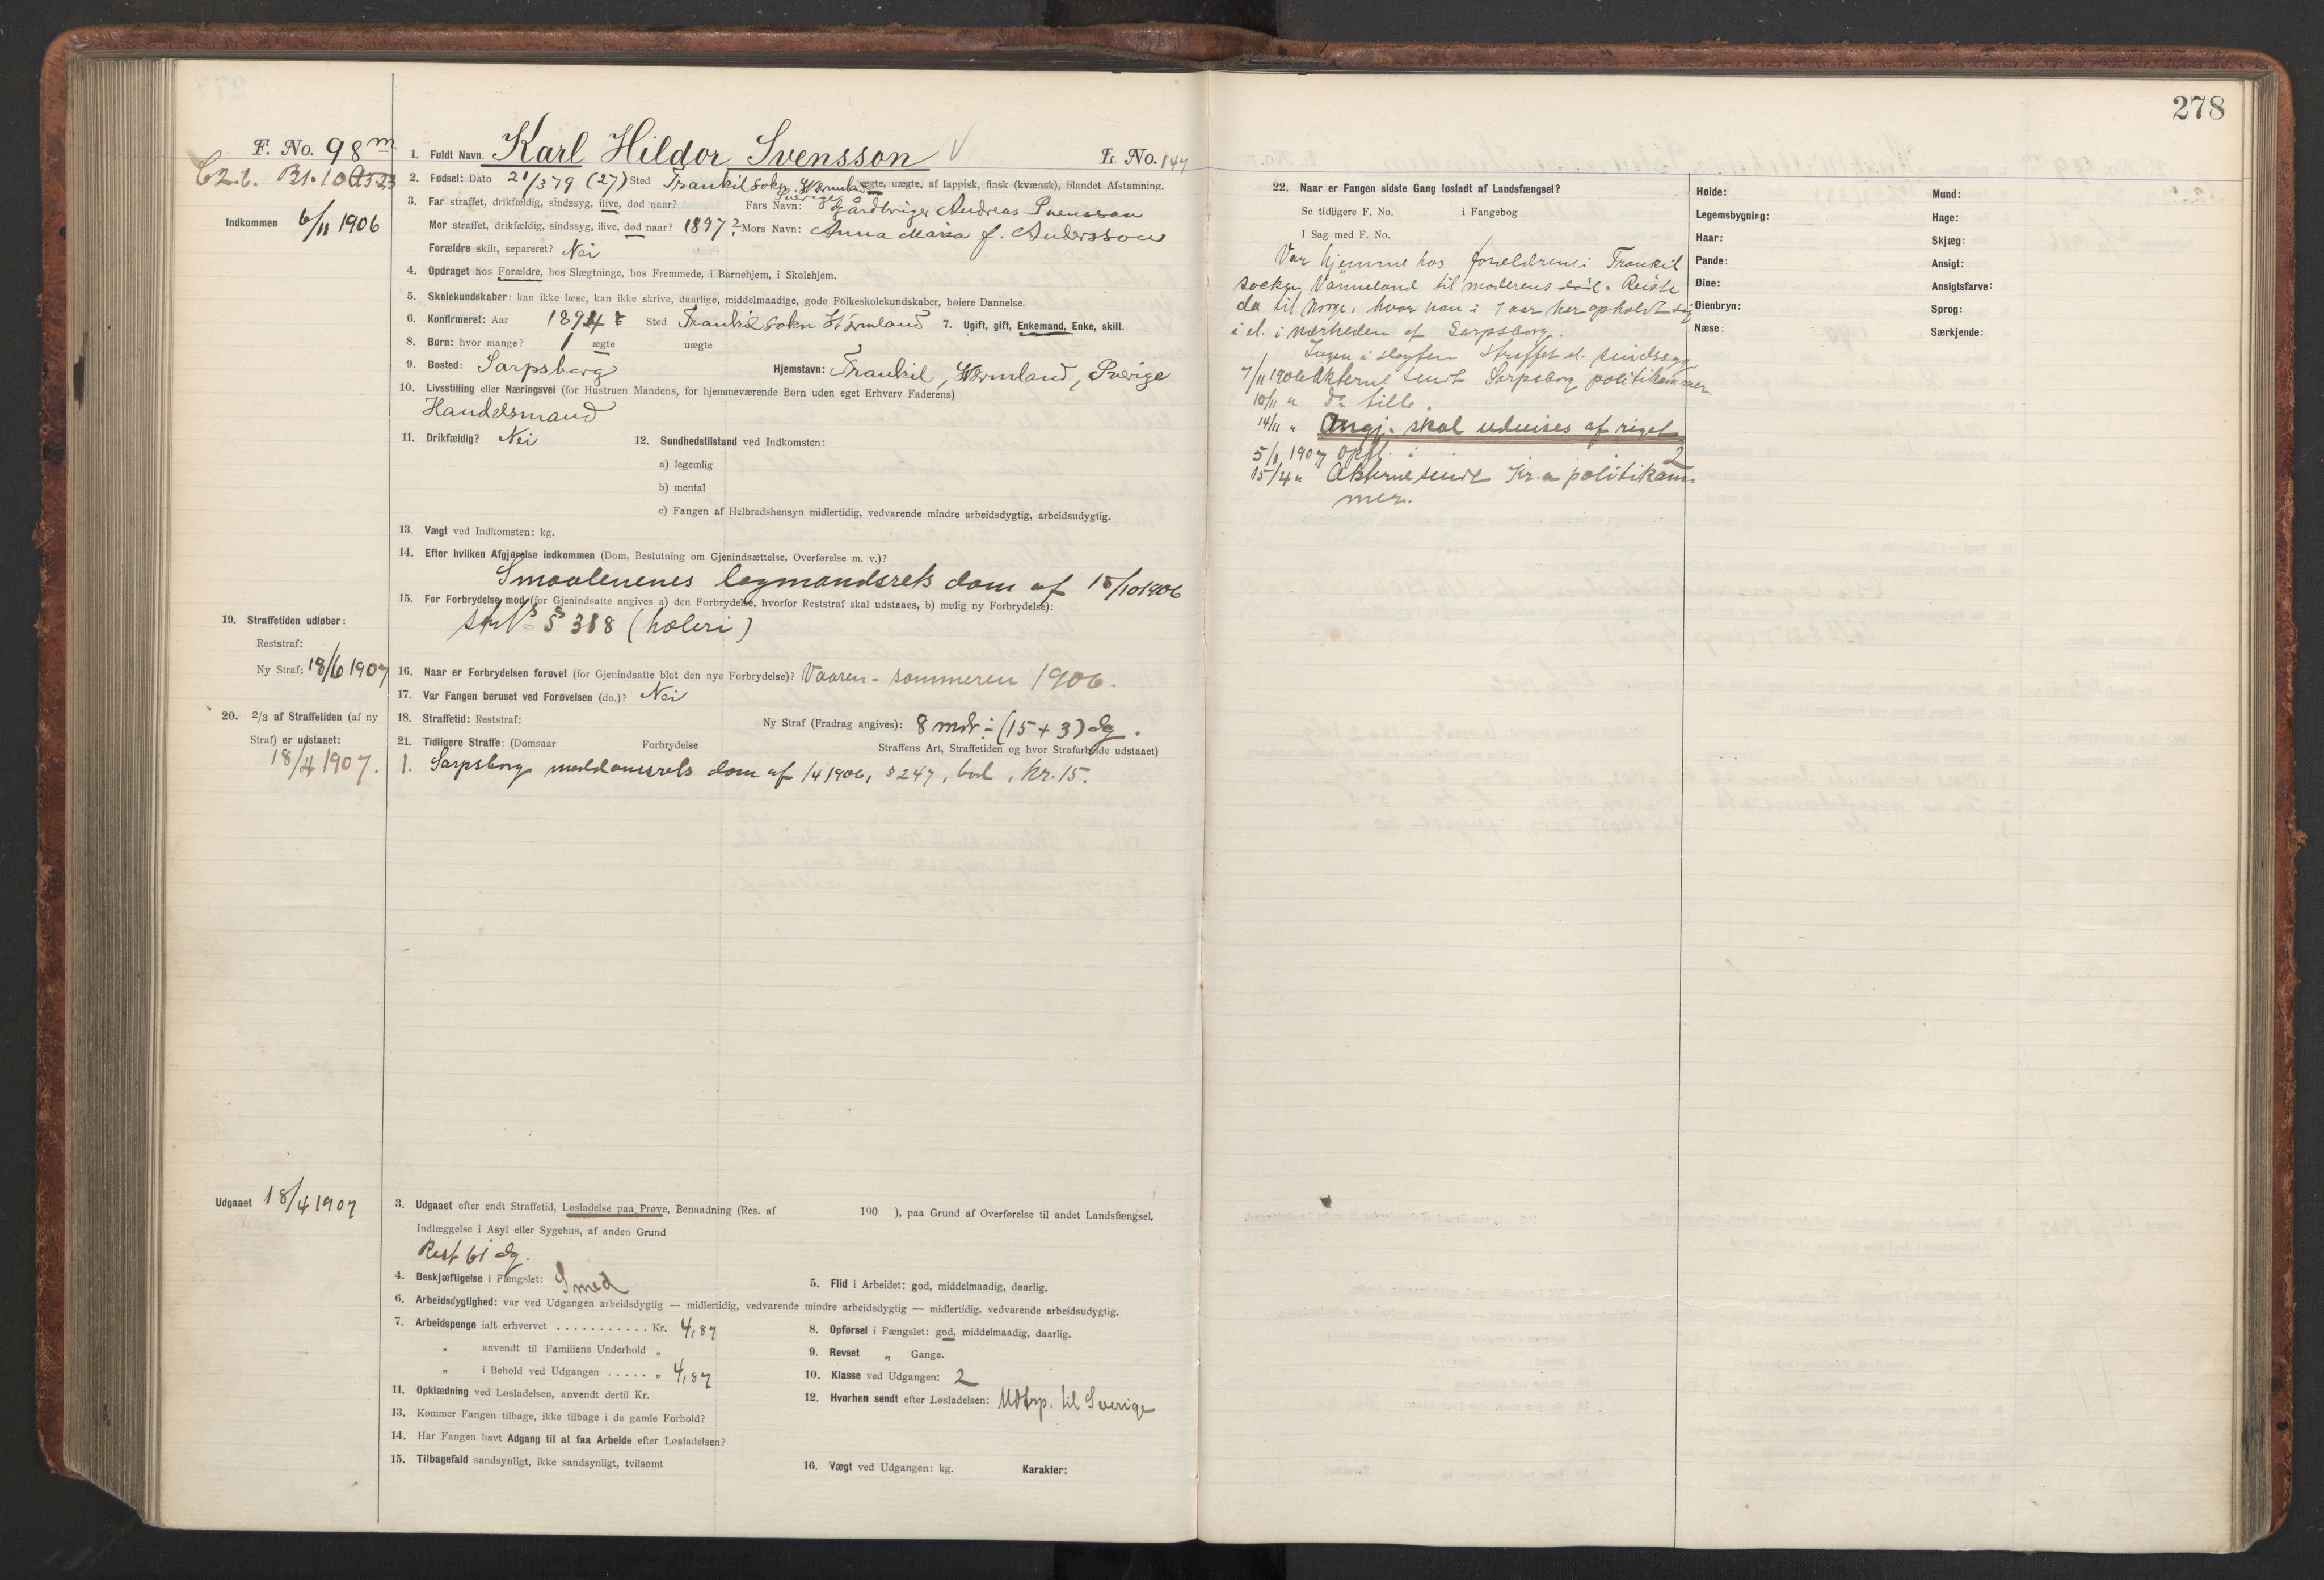 278
F. No. 98 m
1. Fuldt Navn. Karl Hildor Svensson
L. No. 147
2. Fødsel: Dato 21/3 79 (27) Sted Trankil sokn. Wermland Sverige ægte, uægte, af lappisk, finsk (kvænsk), blandet Afstamning.
Indkommen 6/11 1906
3. Far straffet, drikfældig, sindssyg, ilive, død naar? Fars Navn: Gårdbruger Andreas Svensson
Mor straffet, drikfældig, sindssyg, ilive, død naar? 1897? Mors Navn: Anna Maria f. Andersson
Forældre skilt, separeret? Nei
4. Opdraget hos Forældre, hos Slægtninge, hos Fremmede, i Barnehjem, i Skolehjem.
5. Skolekundskaber: kan ikke læse, kan ikke skrive, daarlige, middelmaadige, gode Folkeskolekundskaber, høiere Dannelse.
6. Konfirmeret: Aar 1894? Sted Trankil sokn Wermland 7. Ugift, gift, Enkemand, Enke, skilt.
8. Børn: hvor mange? 1 ægte uægte
9. Bosted: Sarpsborg Hjemstavn: Trankil, Wermland, Sverige
10. Livsstilling eller Næringsvei (for Hustruen Mandens, for hjemmeværende Børn uden eget Erhverv Faderens)
Handelsmand
11. Drikfældig? Nei 12. Sundhedstilstand ved Indkomsten:
a) legemlig
b) mental
c) Fangen af Helbredshensyn midlertidig, vedvarende mindre arbeidsdygtig, arbeidsudygtig.
13. Vægt ved Indkomsten: kg.
14. Efter hvilken Afgjørelse indkommen (Dom, Beslutning om Gjenindsættelse, Overførelse m. v.)?
Smaalenenes lagmandsrets dom af 15/10 1906
15. For Forbrydelse mod (for Gjenindsatte angives a) den Forbrydelse, hvorfor Reststraf skal udstaaes, b) mulig ny Forbrydelse):
§ 318 (hæleri)
19. Straffetiden udløber:
Reststraf:
Ny Straf: 18/6 1907
16. Naar er Forbrydelsen forøvet (for Gjenindsatte blot den nye Forbrydelse)? Vaaren - sommeren 1906.
17. Var Fangen beruset ved Forøvelsen (do.)? Nei
20. 2/3 af Straffetiden (af ny Straf) er udstaaet:
18/4 1907.
18. Straffetid: Reststraf: Ny Straf (Fradrag angives): 8 mdr ÷ (15 + 3) dg.
21. Tidligere Straffe: (Domsaar Forbrydelse Straffens Art, Straffetiden og hvor Strafarbeide udstaaet)
1. Sarpsborg meddomsrets dom af 1906, § 247, bod, kr. 15.
Udgaaet 18/4 1907
3. Udgaaet efter endt Straffetid, Løsladelse paa Prøve, Benaadning (Res. af 190 ), paa Grund af Overførelse til andet Landsfængsel,
Indlæggelse i Asyl eller Sygehus, af anden Grund
Rest 61 dg.
4. Beskjæftigelse i Fængslet: Smed
5. Flid i Arbeidet: god, middelmaadig, daarlig.
6. Arbeidsdygtighed: var ved Udgangen arbeidsdygtig — midlertidig, vedvarende mindre arbeidsdygtig — midlertidig, vedvarende arbeidsudygtig.
7. Arbeidspenge ialt erhvervet . . . . . . . . . . . Kr. 4,87
8. Opførsel i Fængslet: god, middelmaadig, daarlig.
„ anvendt til Familiens Underhold „
9. Revset „ Gange.
„ i Behold ved Udgangen . . . . . „ 4,87
10. Klasse ved Udgangen: 2
11. Opklædning ved Løsladelsen, anvendt dertil Kr.
12. Hvorhen sendt efter Løsladelsen: Udtrp. til Sverige
13. Kommer Fangen tilbage, ikke tilbage i de gamle Forhold?
14. Har Fangen havt Adgang til at faa Arbeide efter Løsladelsen?
15. Tilbagefald sandsynligt, ikke sandsynligt, tvilsomt
16. Vægt ved Udgangen: kg. Karakter:
22. Naar er Fangen sidste Gang løsladt af Landsfængsel?
Se tidligere F. No. i Fangebog
I Sag med F. No.
Var hjemme hos forældrene i Trankil
socken Värmeland til moderens död. Reiste
da til Norge, hvor han i 7 aar har opholdt sig
i el. i nærheden af Sarpsborg.
Ingen i slægten straffet el. sindssyg
7/11 1906 Akterne sendt Sarpsborg politikammer
10/11 " Do tilb.
14/11 " Angj. skal udvises af riget
5/1 1907 Opfl. i 2
15/4 " Akterne sendt Kr.a politikammer.
Høide:
Legemsbygning:
Haar:
Pande:
Øine:
Øienbryn:
Næse:
Mund:
Hage:
Skjæg:
Ansigt:
Ansigtsfarve:
Sprog:
Særkjende: